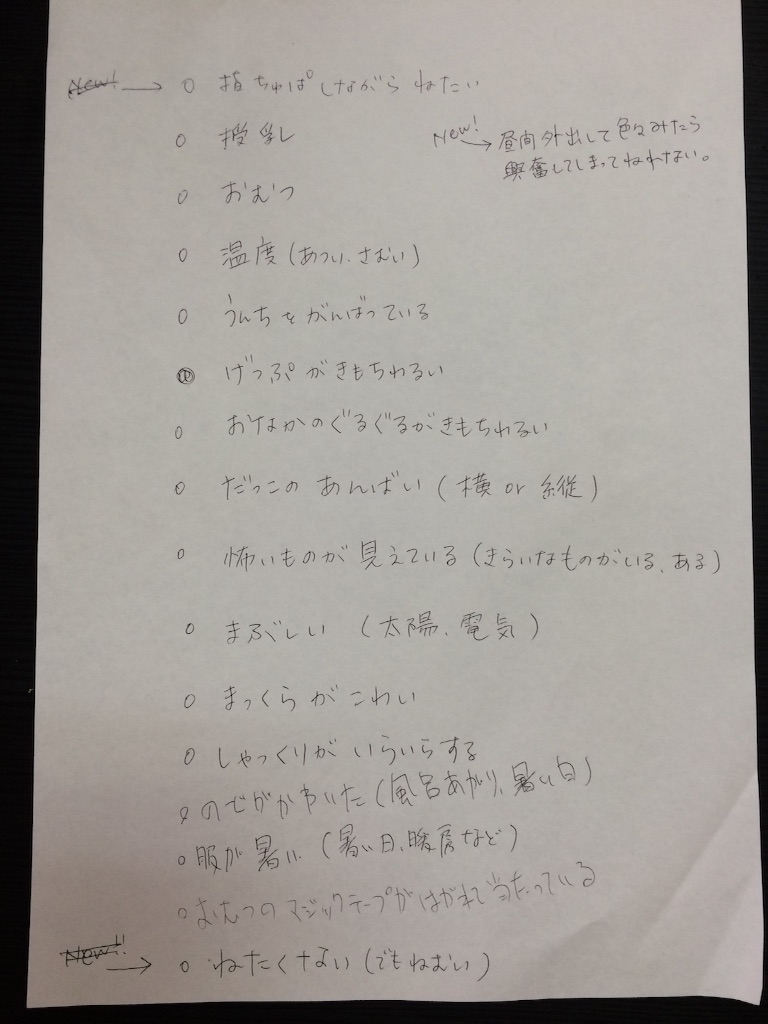 New! → ○ 指ちゅぱしながら ねたい
○ 授乳
New! → 昼間外出して色々みたら
興奮してしまってねれない。
○ おむつ
○ 温度(あつい、さむい)
○ うんちをがんばっている
○ げっぷがきもちわるい
○ おなかのぐるぐるがきもちわるい
○ だっこの あんばい (横 or 縦)
○ 怖いものが見えている(きらいなものがいる、ある)
○ まぶしい (太陽、電気)
○ まっくらがこわい
○ しゃっくりが いらいらする
○ のどがかわいた(風呂あがり、暑い日)
○ 服が暑い (暑い日、暖房など)
○ おむつのマジックテープがはがれて当たっている
New!! → ○ ねたくない(でもねむい)